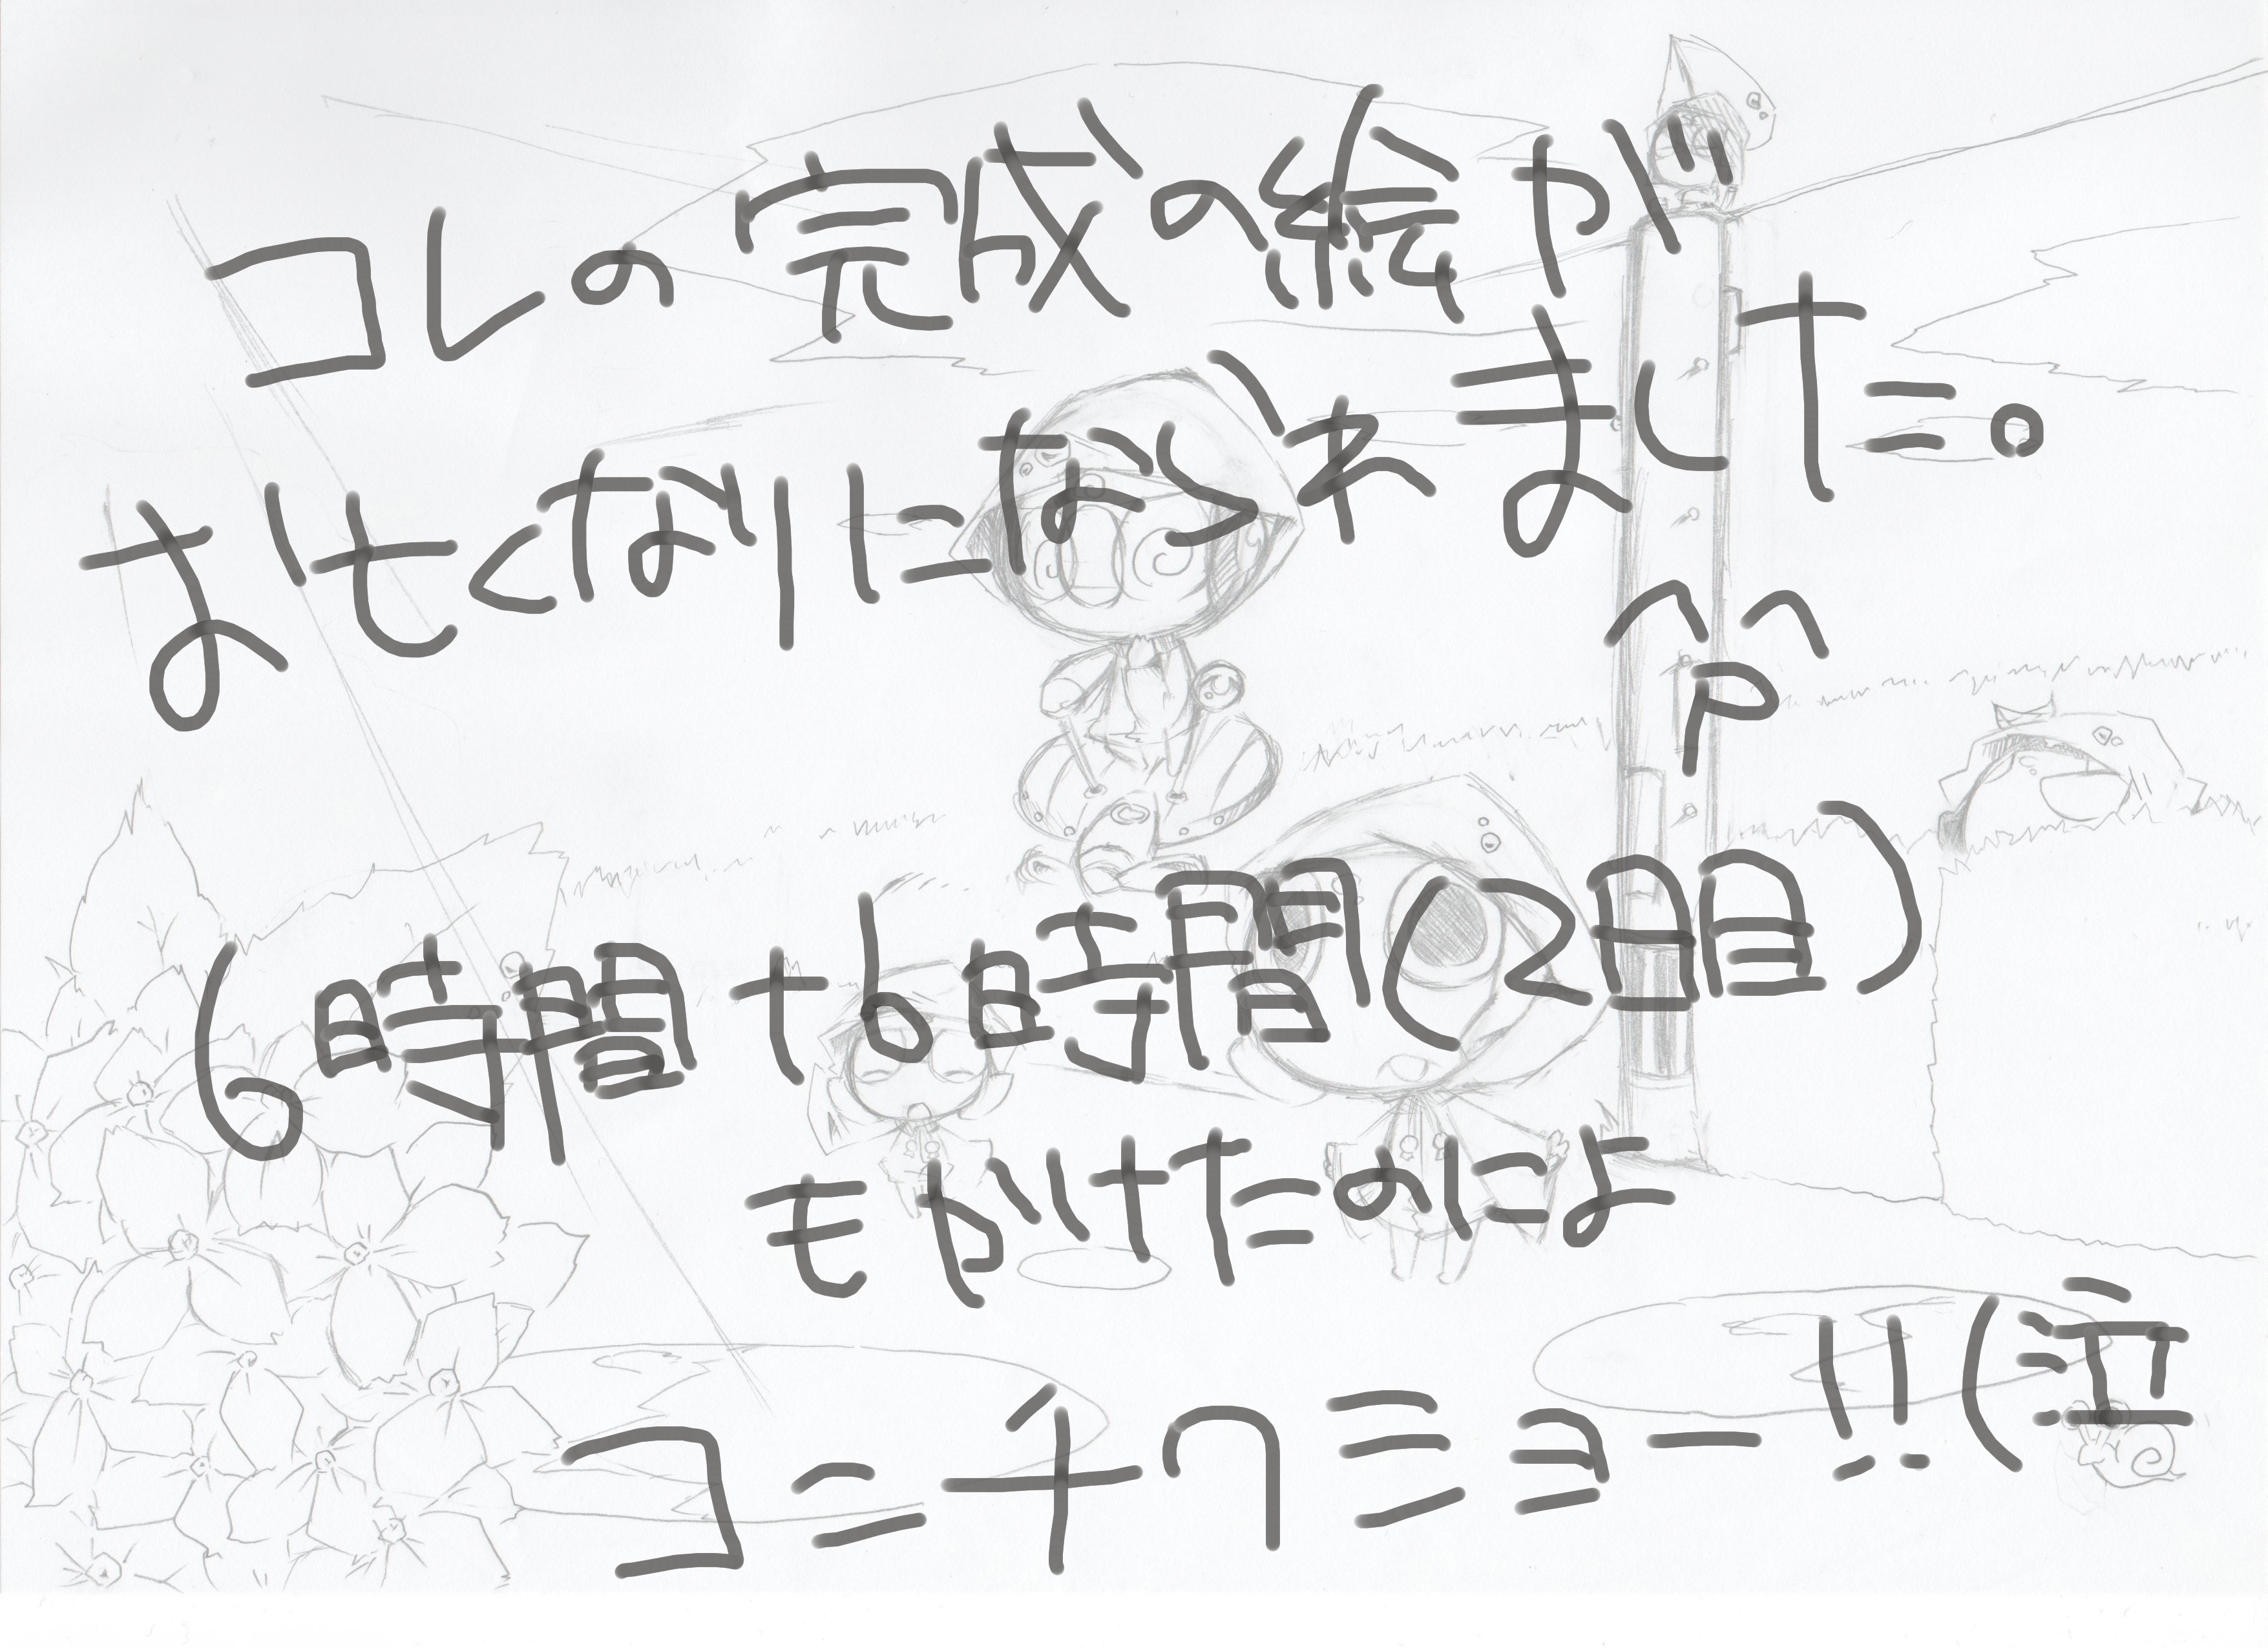 コレの完成の絵が
おせくなりになられました。
6時間+6時間(2日目)
もかけたのによ
コニチクミョー!!(泣